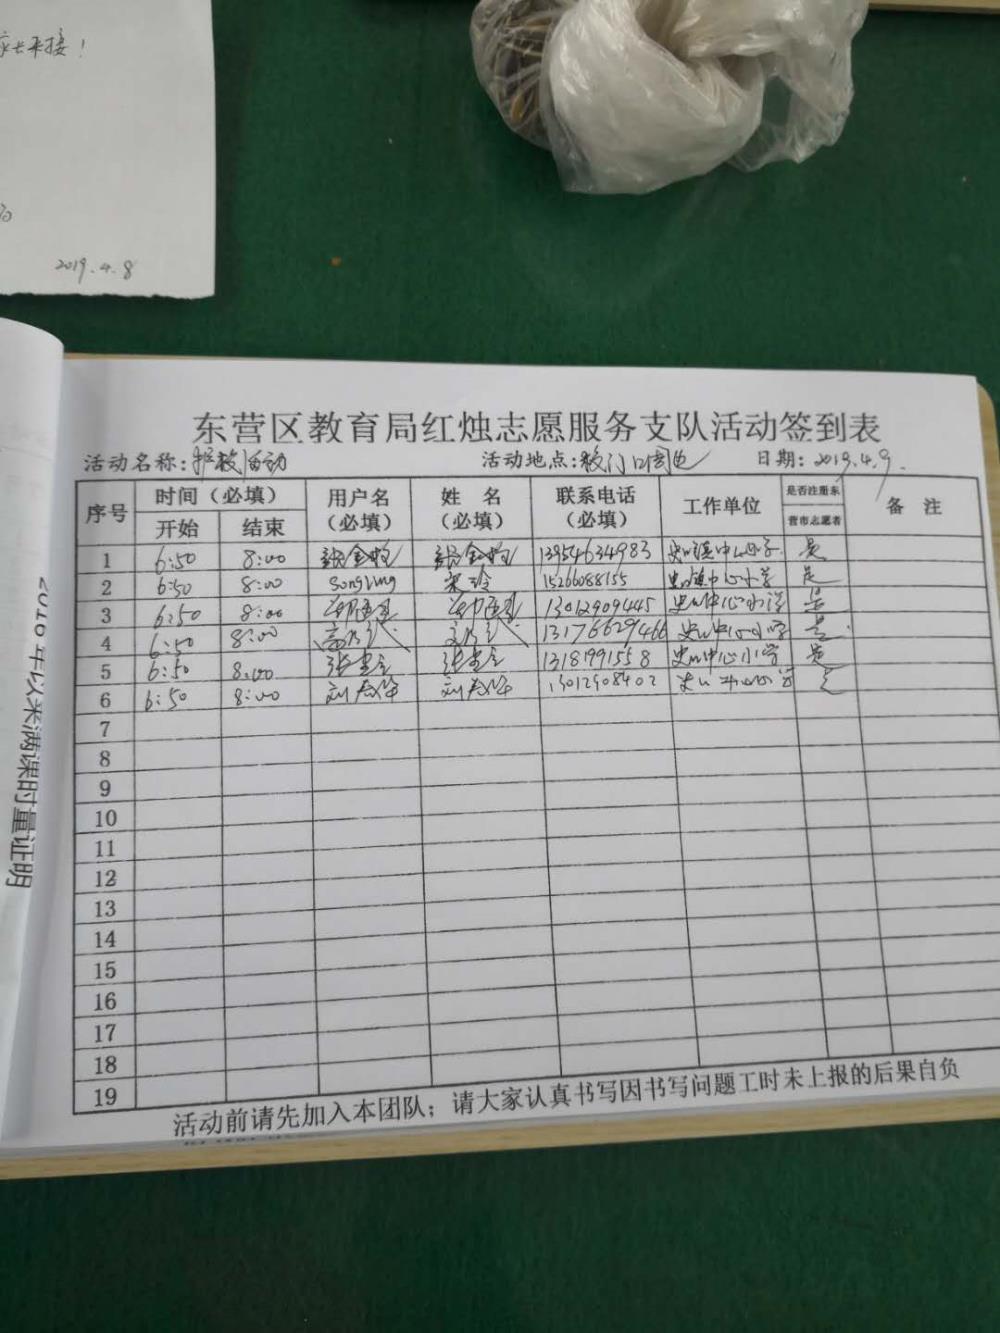 来接！
2019.4.8
东营区教育局红烛志愿服务支队活动签到表
活动名称：护校活动 活动地点：校门口周边 日期：2019.4.9.
序号 时间（必填） 用户名（必填） 姓 名（必填） 联系电话（必填） 工作单位 是否注册东营市志愿者 备 注
开始 结束
1 6:50 8:00 13954634983 史口镇中心小学 是
2 6:50 8:00 Songling 宋玲 15266068155 史口镇中心小学 是
3 6:50 8:00 13012909445 史口中心小学 是
4 6:50 8:00 13176629466 史口中心小学 是
5 6:50 8:00 13187991558 史口中心小学 是
6 6:50 8:00 13012908402 是
7
8
9
10
11
12
13
14
15
16
17
18
19
活动前请先加入本团队；请大家认真书写因书写问题工时未上报的后果自负
满课时量证明